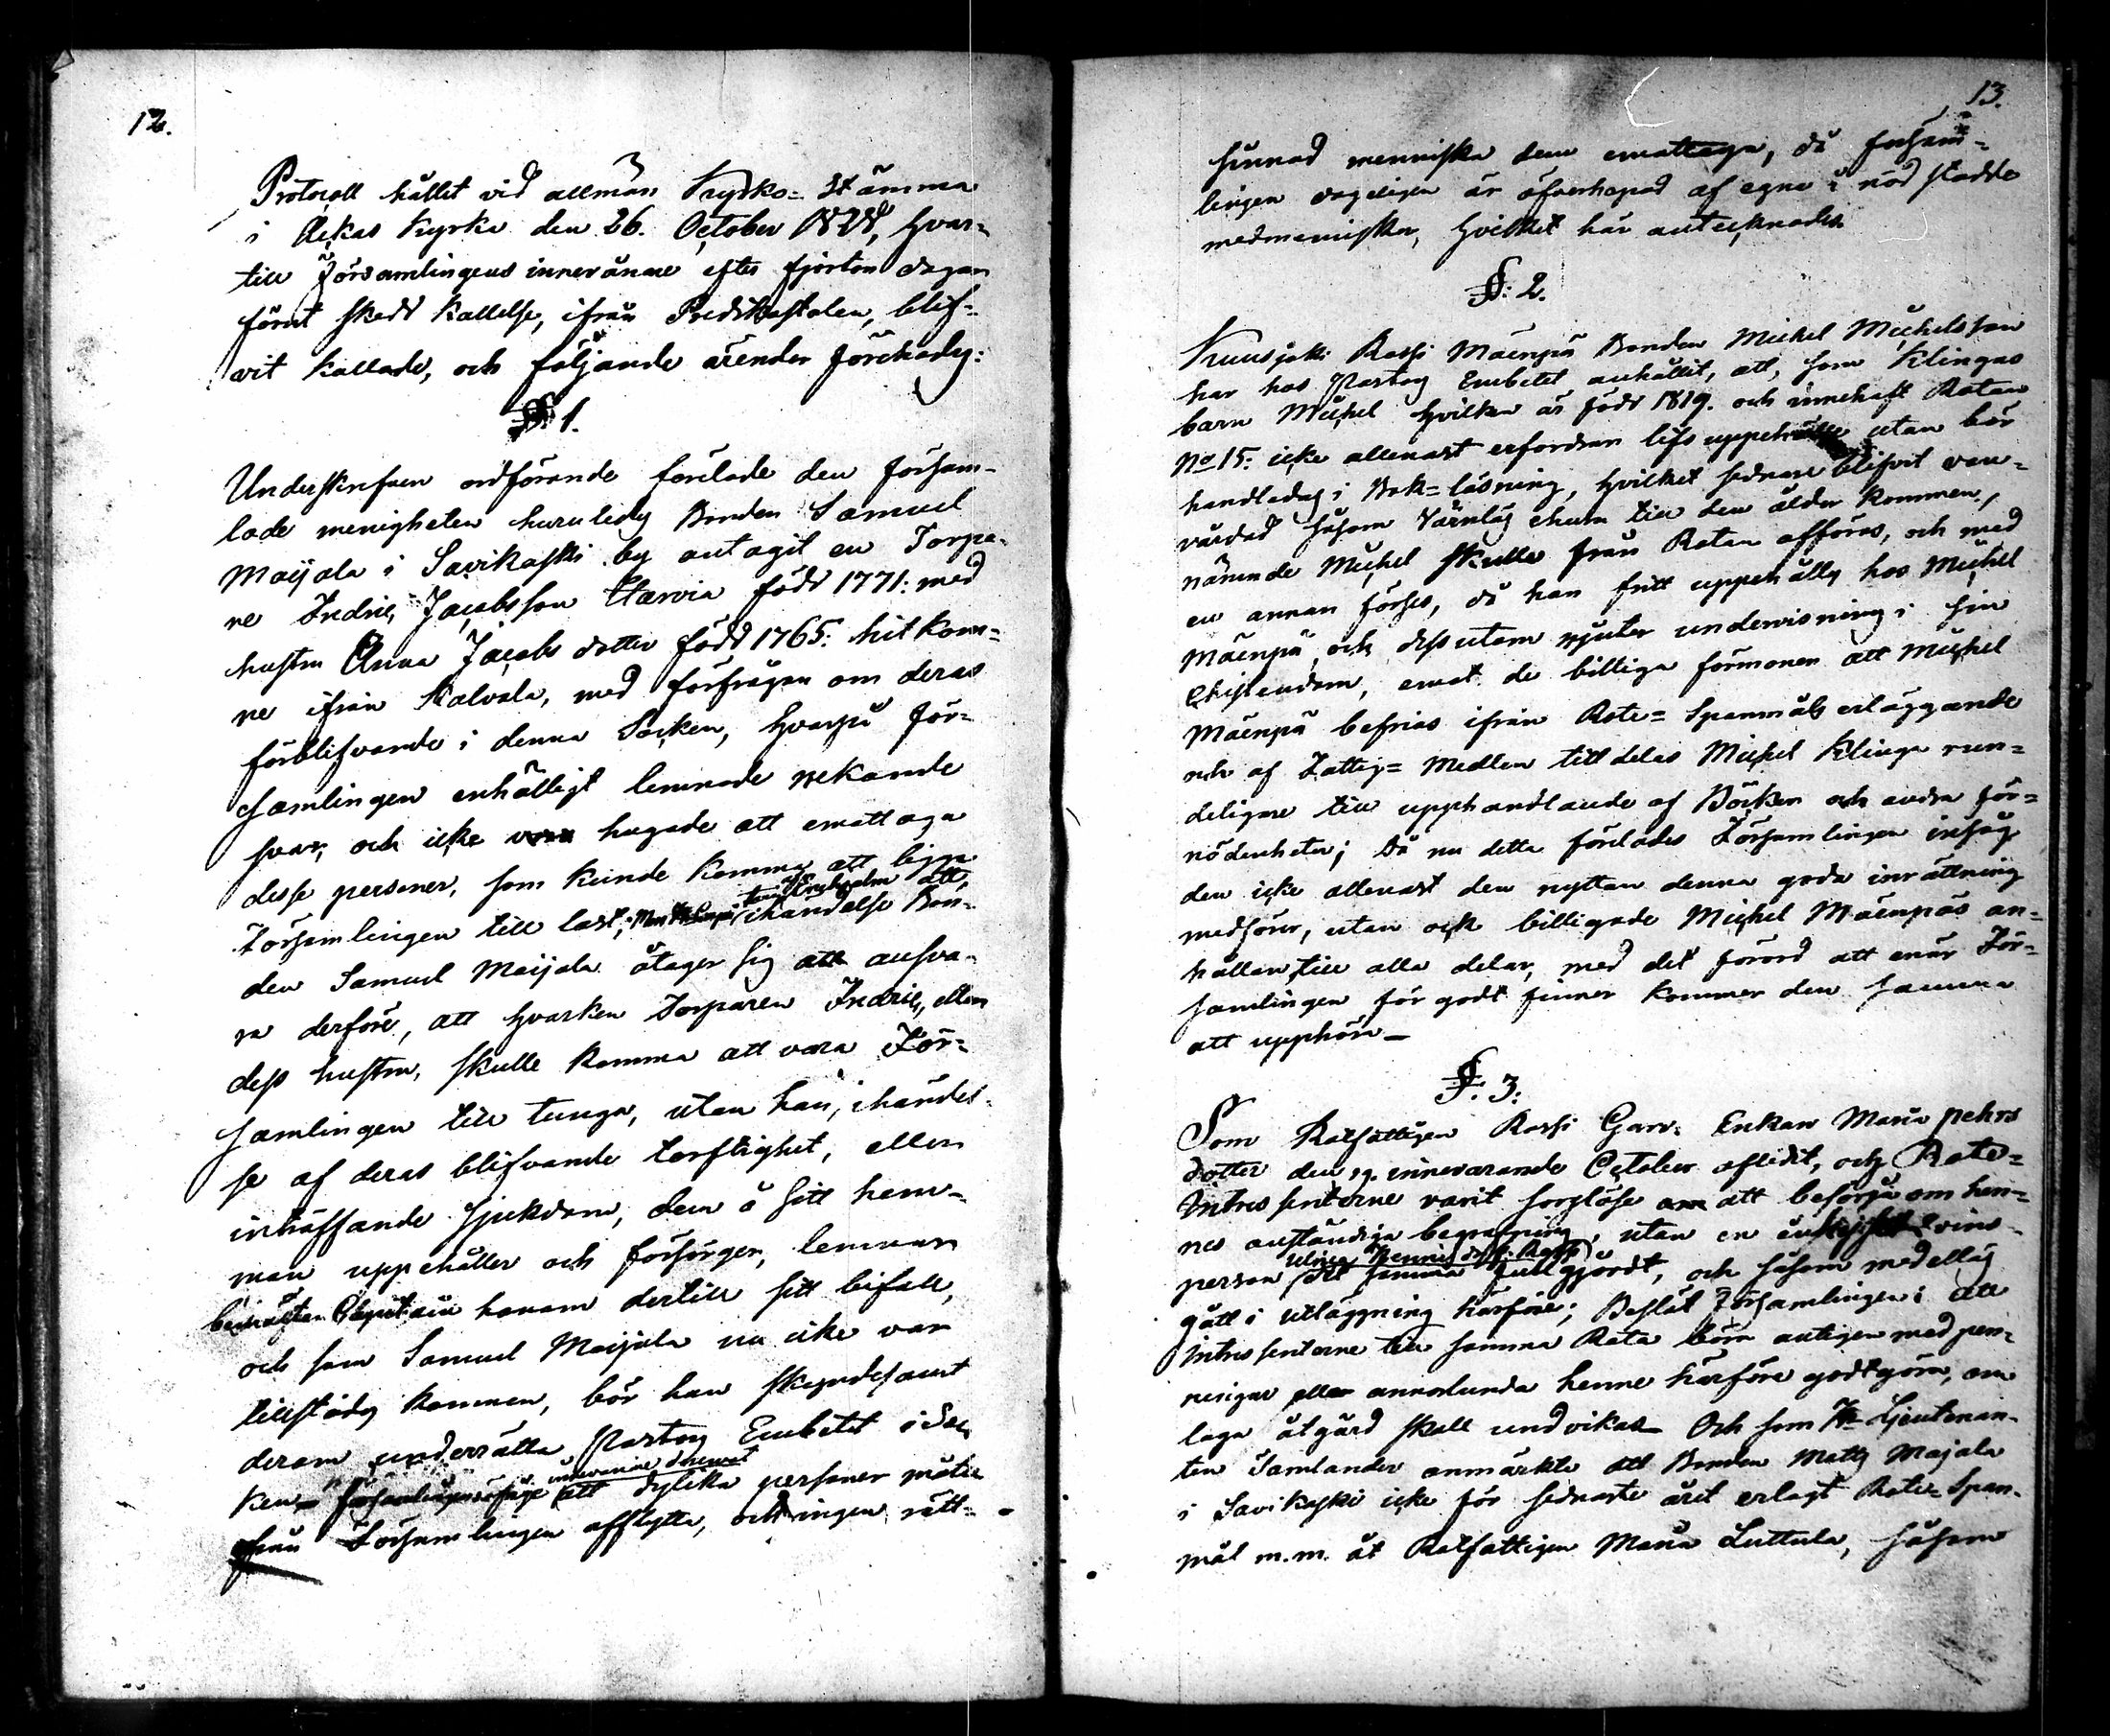 12.
Protocoll hållet vid allmän Kyrko=Stämma
i Ackas Kyrka den 26. October 1828, hvar=
till Församlingens innevånare efter fjorton dagar
förut skedd kallelse, ifrån Predikostolen, blif=
vit kallade, och följande ärender förehades:
§ 1.
Underskrefven ordförande förelade den försam=
lade menigheten huruledes Bonden Samuel
Maijala i Savikoski by antagit en Torpa=
re Indric Jacobsson Harvia född 1771: med
hustru Anna Jacobs dotter född 1765: hitkom=
ne ifrån Kalvola, med förfrågan om deras
förblifvande i denna Socken, hvarpå För=
samlingen enhälligt lemnade nekande
svar, och icke hugade att emottaga
desse personer, som kunde komma att ligga
Församlingen till last; ihändelse Bon=
den Samuel Maijala åtager sig att ansva=
ra derföre, att hvarken Torparen Indric, eller
dess hustru, skulle komma att vara För=
samlingen till tunga, utan han, ihändel=
se af deras blifvande torftighet, eller
inträffande sjukdom, dem å sitt hem=
man uppehåller och försörger, lemnar
Capitain honom dertill sitt bifall,
och som Samuel Maijala nu icke var
tillstädes kommen, bör han skyndesamt
derom underrätta Pastors Embetet i Soc
ken att dylika personer måtte
ifrån Församlingen afflytta, och ingen rätt=
13.
sinnad menniska dem emottaga, då försam=
lingen dageligen är öfverhopad af egna i nöd stadde
medmenniskor, hvilket här antecknades.
§: 2.
Kuusjoki Rassi Mäenpä Bonden Michel Michelsson
har hos Pastors Embetet anhållit, att, som Klingas
barn Michel hvilken är född 1819. och innehaft Rotan
No 15: icke allenast erfordran lifs uppehälle utan bör
handledas i Bok=läsning, hvilket sednare blifvit van=
vårdad såsom Värnlös ehuru till den ålder kommen,
nämnde Michel skulle från Rotan afföras, och med
en annan förses, då han fritt uppehålles hos Michel
Mäenpä, och dessutom njuter undervisning i sin
Christendom, emot de billiga förmoner att Michel
Mäenpä befrias ifrån Rote=Spanmåls erläggande
och af Fattig=Medlen tilldelas Michel Klinga run=
deligare till upphandlande af Böcker och andra för=
nödenheter; Då nu detta förelades Församlingen insåg
den icke allenast den nyttan denna goda inrättning
medförer, utan ock billigade Michel Mäenpäs an=
hållan, till alla delar, med det förord att enär För=
samlingen för godt finner kommer den samma
att upphöra—
§: 3:
Som Rotfattigen Rassi Gam: Enkan Maria Pehrs
dotter den 19. innevarande October aflidit, och Rote=
Intressenterne varit sorglöse att besörja om hen=
nes anständiga begrafning, utan en
person det samma fullgjordt, och såsom medellös
gått i utläggning härföre; Beslöt Församlingen: att
Intressenterne till samma Rota böra antigen med pen=
ningar eller annorlunda henne härföre godtgöra, om
laga åtgärd skall undvikas— Och som Hr Lieutenan=
ten Tamlander anmärkte att Bonden Matts Majala
i Savikoski icke för sednaste året erlagt Rote=Span=
mål m.m. åt Rotfattigen Maria Luttula, såsom